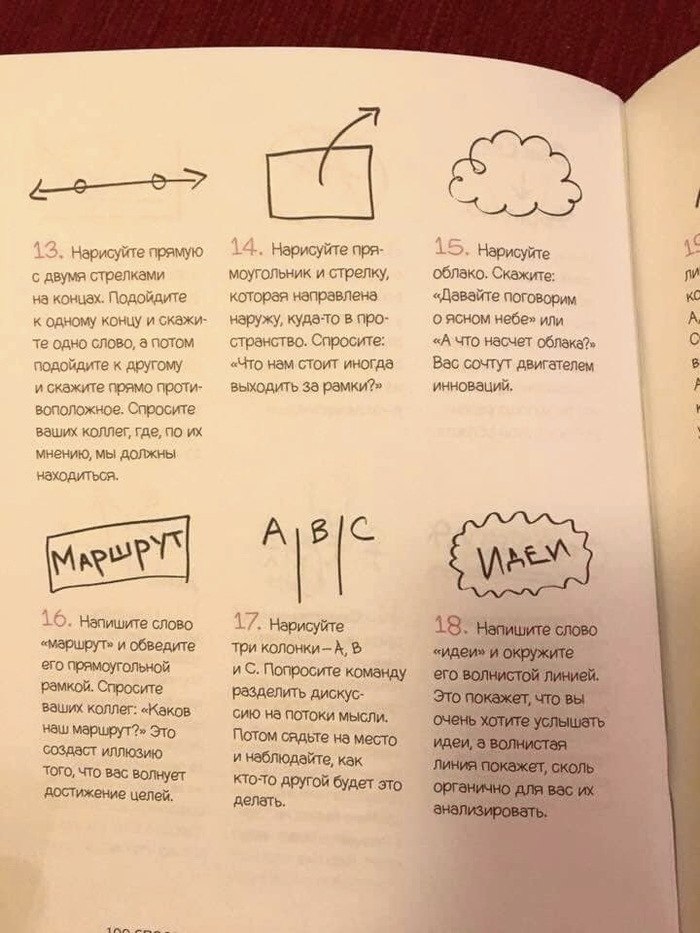 13. Нарисуйте прямую
с двумя стрелками
на концах. Подойдите
к одному концу и скажи-
те одно слово, а потом
подойдите к другому
и скажите прямо проти-
воположное. Спросите
ваших коллег, где, по их
мнению, мы должны
находиться.
14. Нарисуйте пря-
моугольник и стрелку,
которая направлена
наружу, куда-то в про-
странство. Спросите:
«Что нам стоит иногда
выходить за рамки?»
15. Нарисуйте
облако. Скажите:
«Давайте поговорим
о ясном небе» или
«А что насчет облака?»
Вас сочтут двигателем
инноваций.
МАРШРУТ
16. Напишите слово
«маршрут» и обведите
его прямоугольной
рамкой. Спросите
ваших коллег: «Каков
наш маршрут?» Это
создаст иллюзию
того, что вас волнует
достижение целей.
A B C
17. Нарисуйте
три колонки – A, B
и C. Попросите команду
разделить дискус-
сию на потоки мысли.
Потом сядьте на место
и наблюдайте, как
кто-то другой будет это
делать.
ИДЕИ
18. Напишите слово
«идеи» и окружите
его волнистой линией.
Это покажет, что вы
очень хотите услышать
идеи, а волнистая
линия покажет, сколь
органично для вас их
анализировать.